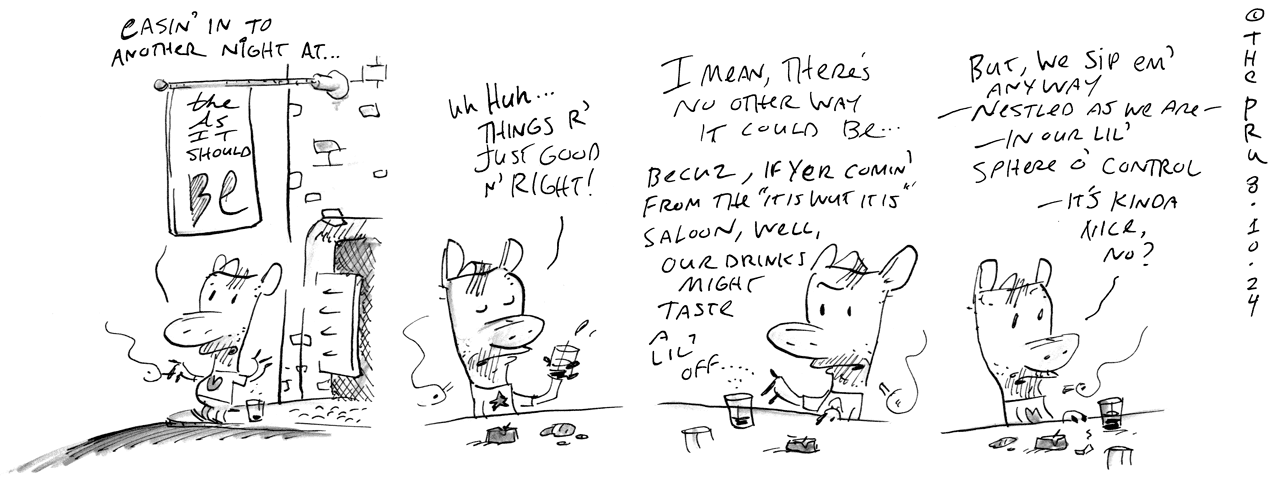 EASIN' IN TO
ANOTHER NIGHT AT...
the
AS
IT
SHOULD
Be
uh Huh...
THINGS R'
JUST GOOD
N' RIGHT!
I MEAN, THERE'S
NO OTHER WAY
IT COULD BE...
BECUZ, IF YER COMIN'
FROM THE "IT IS WUT IT IS"
SALOON, WELL,
OUR DRINKS
MIGHT
TASTE
A
LIL'
OFF.....
BUT, WE SIP EM'
ANYWAY
—NESTLED AS WE ARE—
—IN OUR LIL'
SPHERE O' CONTROL
—IT'S KINDA
NICE,
NO?
© THE PRU 8.10.24